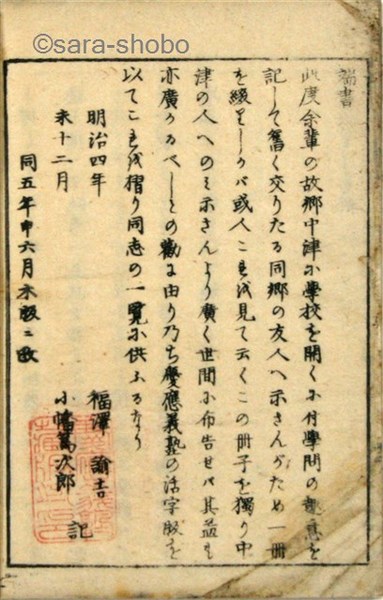 ©sara-shobo
端書
此度余輩の故郷中津に學校を開くに付學問の趣意を
記して舊く交りたる同郷の友人へ示さんがため一冊
を綴りしかバ或人これを見て云くこの冊子を獨り中
津の人へのミ示さんより廣く世間に布告せバ其益も
亦廣かるべしとの勸に由り乃ち慶應義塾の活字版を
以てこれを摺り同志の一覧に供ふるなり
明治四年
未十二月
福澤諭吉
小幡篤次郎
記
同五年申六月木版ニ改